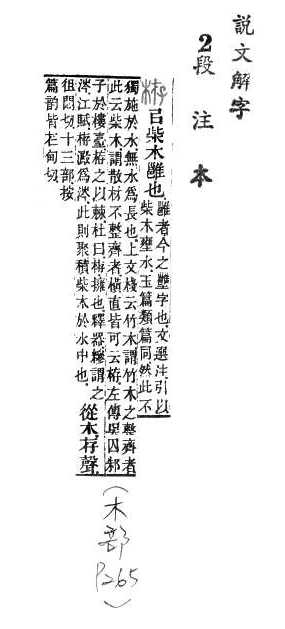 說文解字
2段注本
栫 㠯柴木雝也、
雝者今之壅字也、文選注引以
柴木壅水、玉篇類篇同、然此不
獨施於水無水爲長也、上文棧云竹木謂竹木之整齊者
此云柴木謂散材不整齊者、橫直皆可云栫、左傳吳囚邾
子於樓臺、栫之以棘、杜曰栫、擁也、釋器糝謂之
涔、江賦栫澱爲涔、此則聚積柴木於水中也、
從木存聲、
徂悶切十三部按
篇韵皆在甸切
(木部P265)